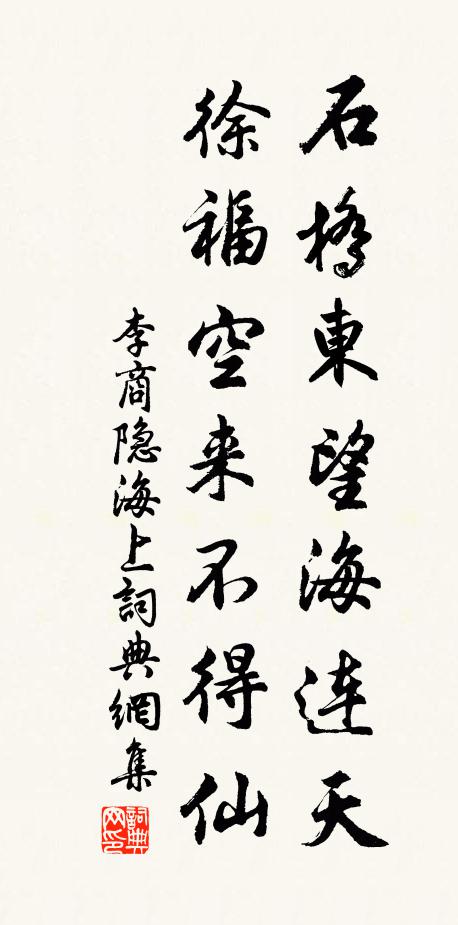 石橋東望海連天
徐福空来不得仙
李商隐海上詞典網集
詞典网印